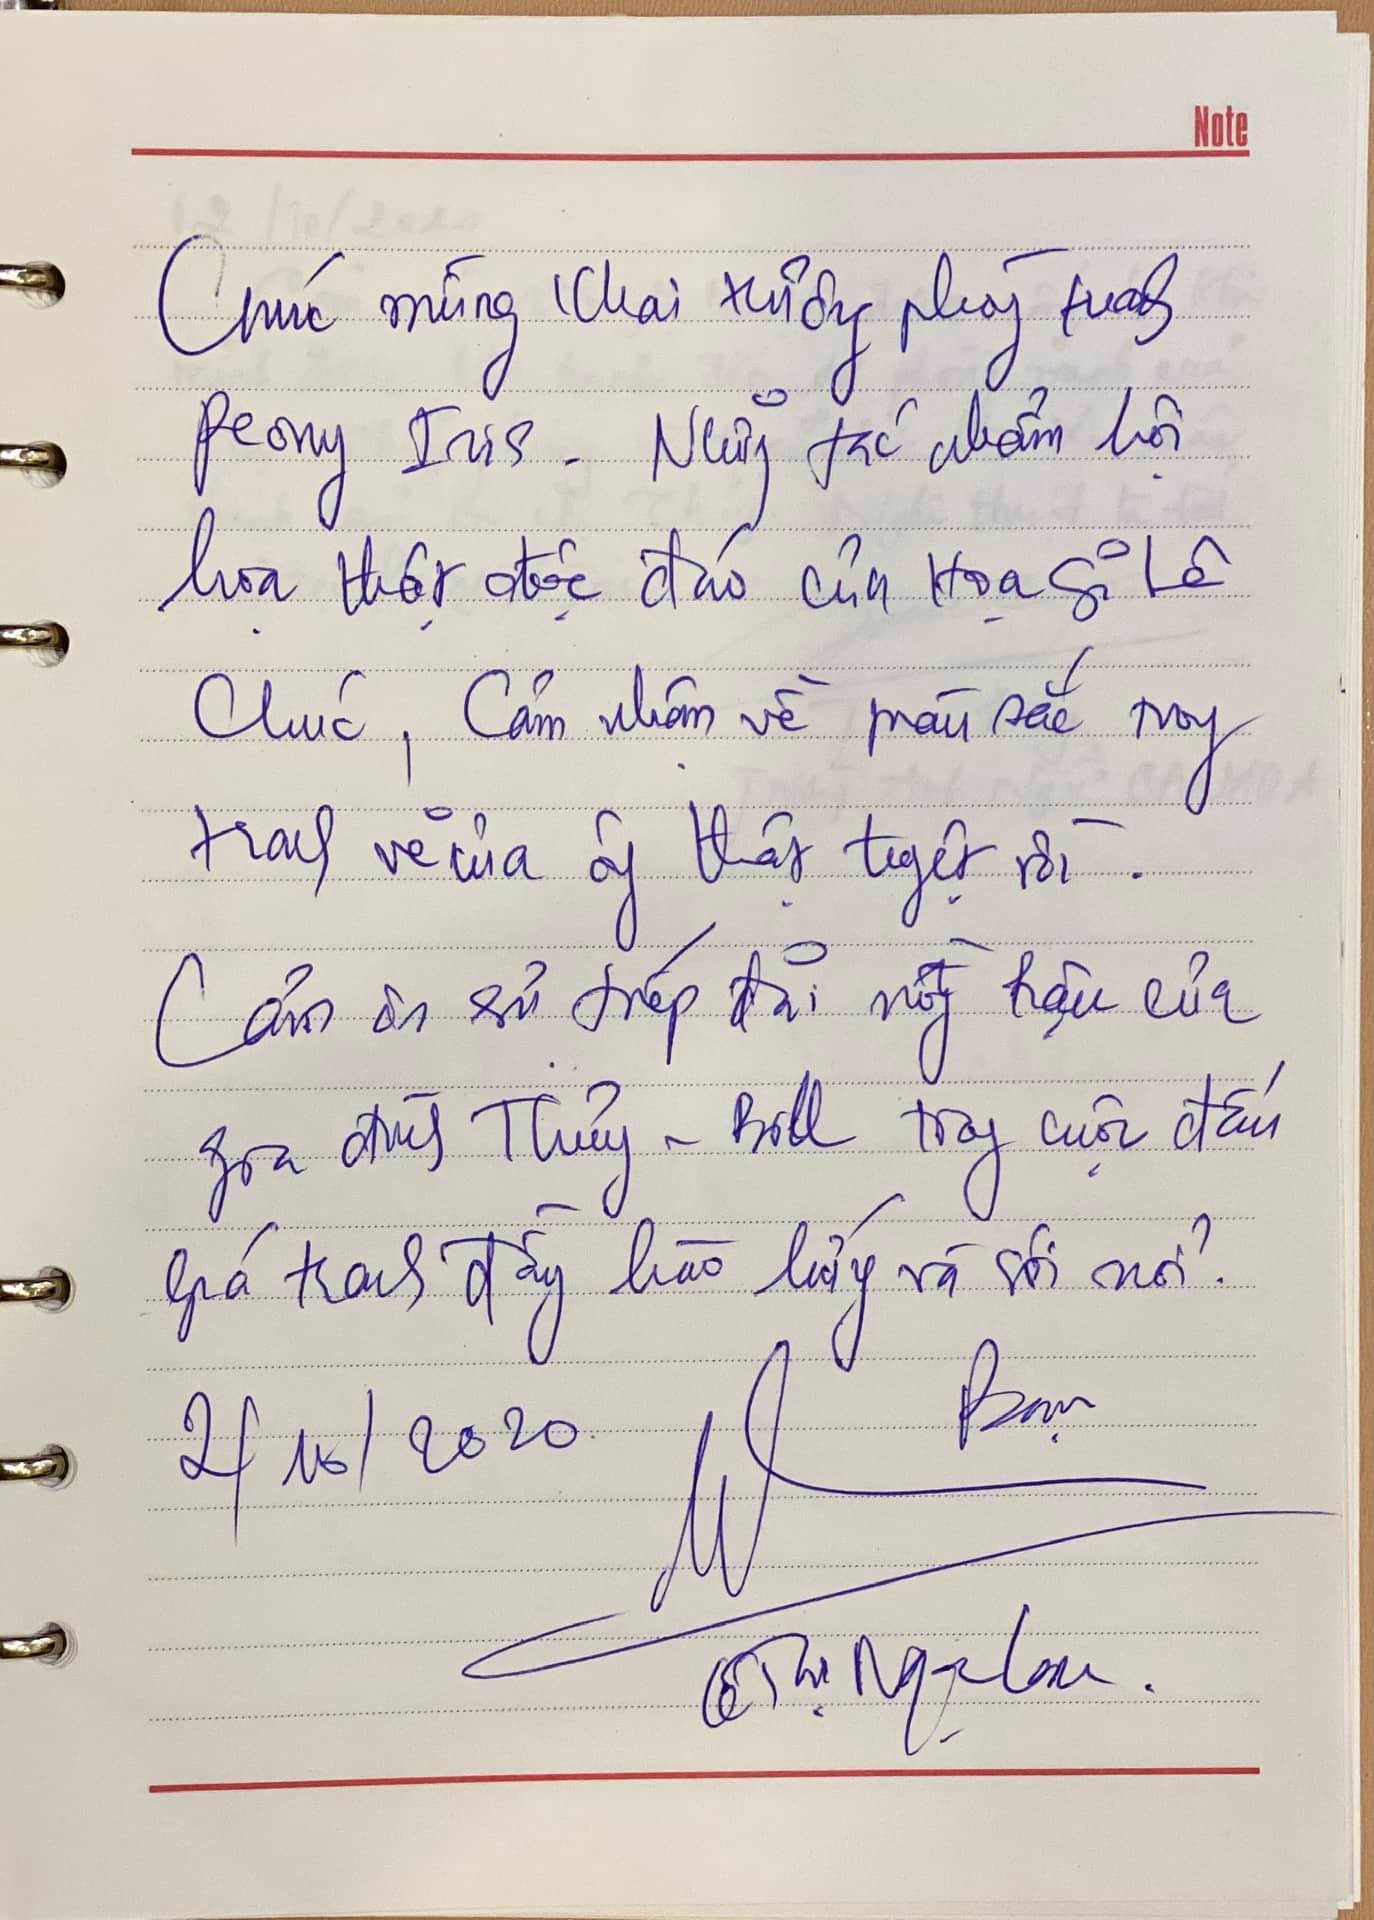 Note
Chúc mừng khai trương phòng tranh
Peony Iris. Những tác phẩm hội
họa thật độc đáo của Họa Sĩ Lê
Chúc, Cảm nhận về màu sắc trong
tranh vẽ của ông thật tuyệt vời.
Cảm ơn sự tiếp đãi nồng hậu của
gia đình Thủy - Bill trong cuộc đấu
giá tranh đầy hào hứng và sôi nổi.
2/10/2020
Bạn
Thị Ngọc Lan.